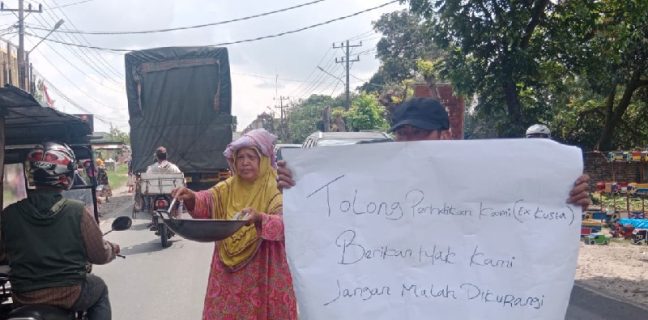 Tolong Perhatikan Kami (Ex Kusta)
Berikan Hak Kami
Jangan Malah Dikurangi